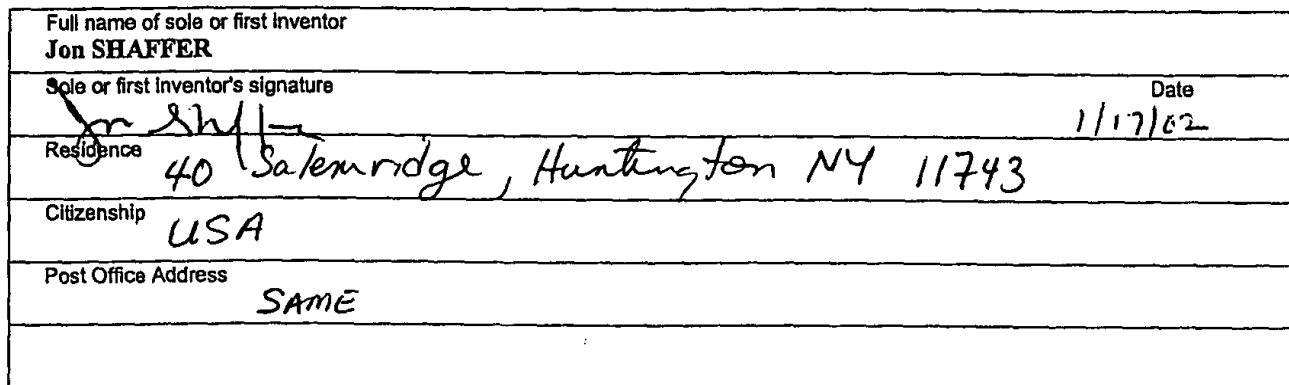 Full name of sole or first inventor
Jon SHAFFER
Sole or first inventor's signature Date
Jon Shaffer 1/17/02
Residence 40 Salemridge, Huntington NY 11743
Citizenship USA
Post Office Address
SAME